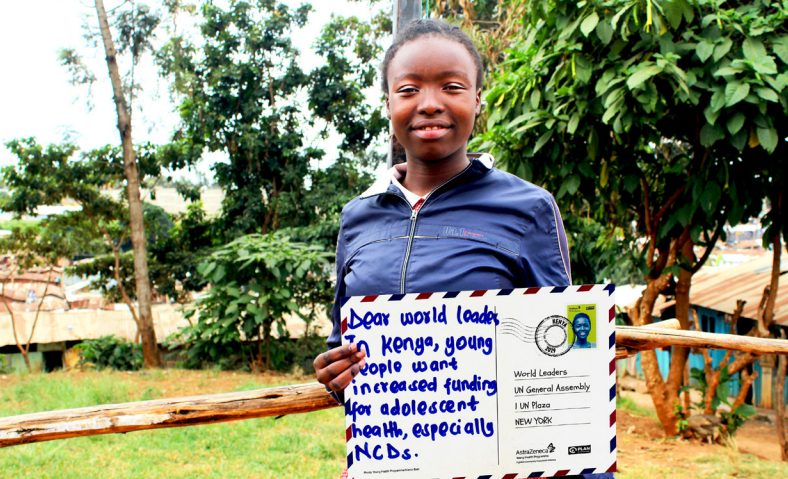 Dear world leader
In Kenya, young
people want
increased funding
for adolescent
health, especially
NCDs.
KENYA
2019
World Leaders
UN General Assembly
1 UN Plaza
NEW YORK
AstraZeneca
Young Health Programme
PLAN